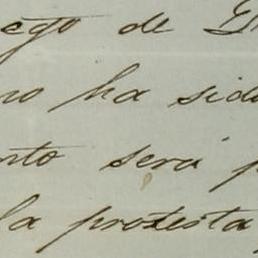 ego de G
no ha sido
nto será p
la protesta